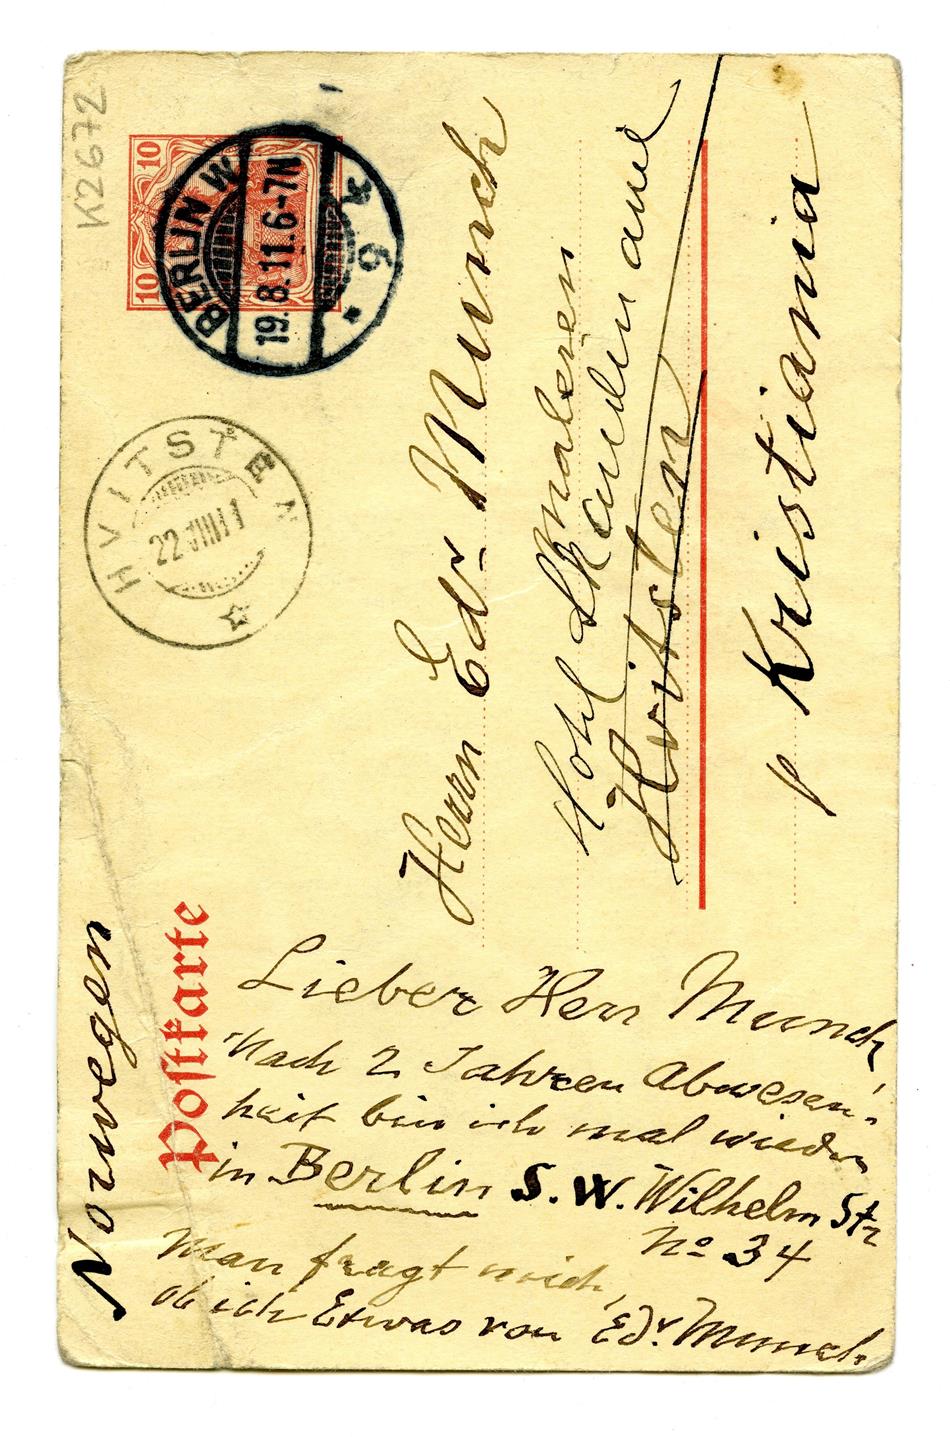 K2672
10 10
BERLIN W
19.8.11.6-7N
* 9 *
HVITSTEN
22 VIII 11
Norwegen
Postkarte
Herrn Edv. Munch
Maleren
Hvitsten
p Kristiania
Lieber Herr Munch
Nach 2 Jahren Abwesen-
heit bin ich mal wieder
in Berlin S.W. Wilhelm Str
No 34
Man fragt mich,
ob ich Etwas von Edv. Munch